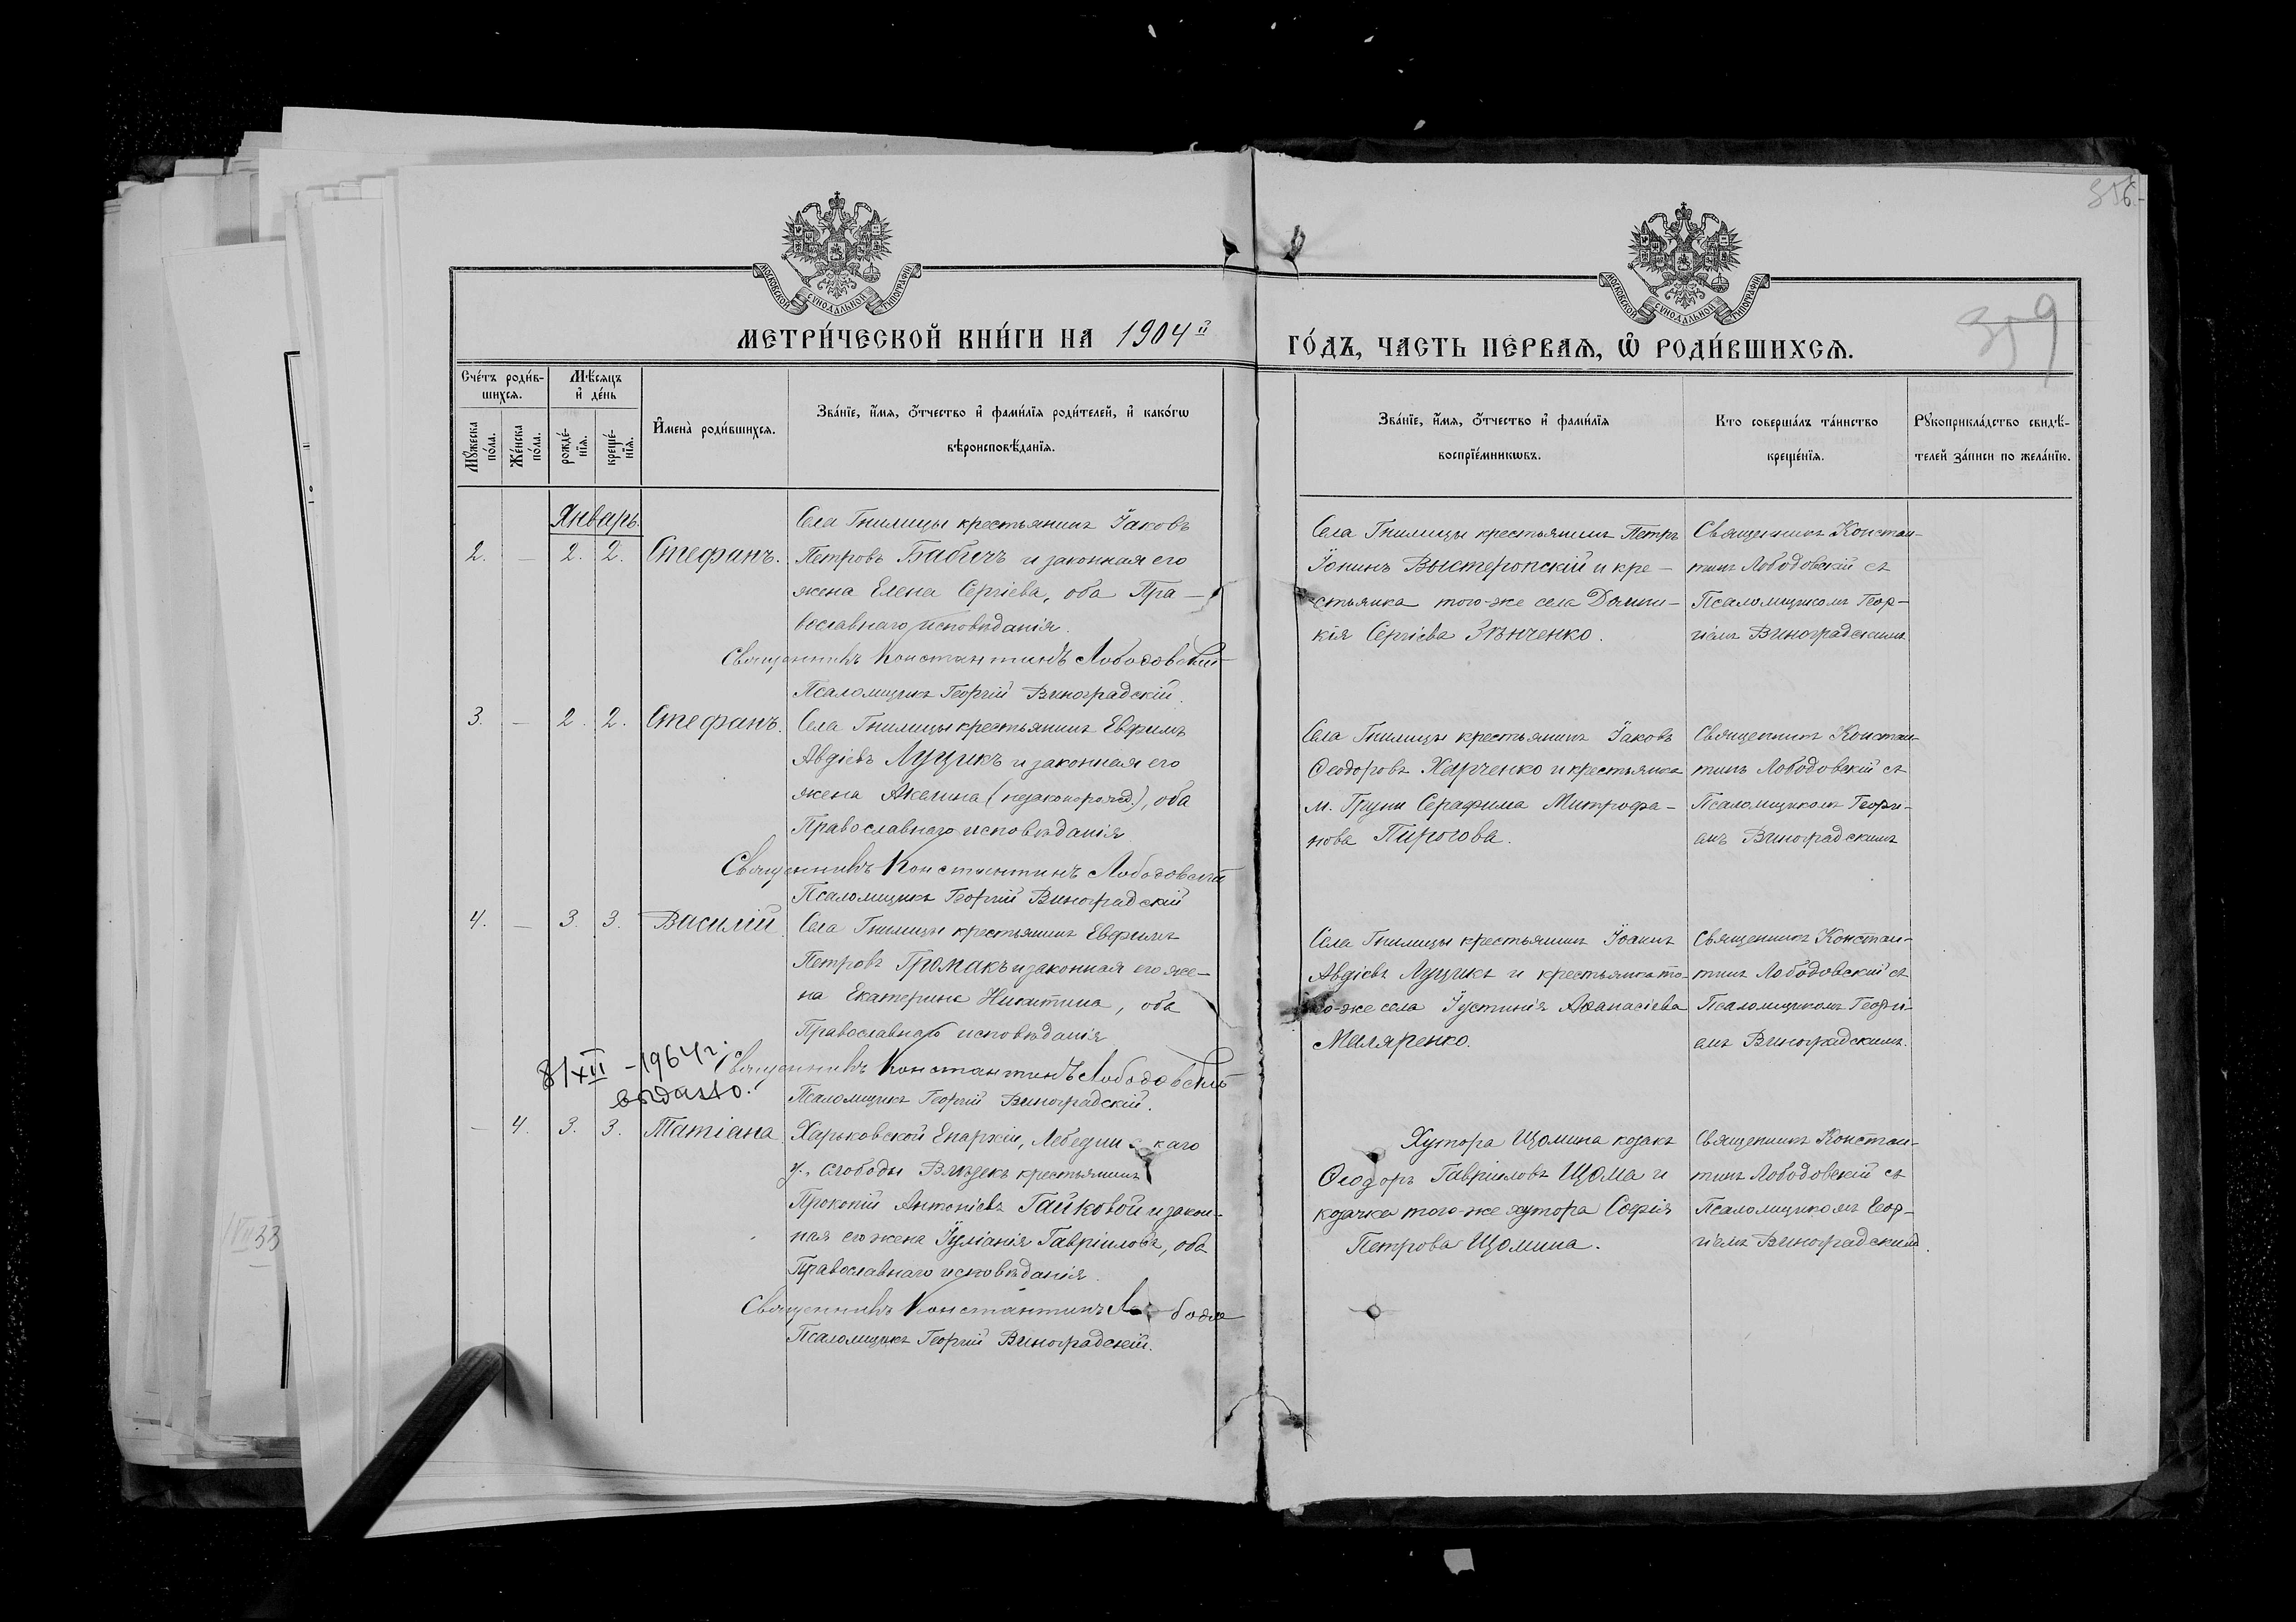 356.
359
МОСКОВСКОЙ СѴНОДАЛЬНОЙ ТИПОГРАФІИ
МОСКОВСКОЙ СѴНОДАЛЬНОЙ ТИПОГРАФІИ
МЕТРИ́ЧЕСКОЙ КНИ́ГИ НА 1904й ГО́ДЪ, ЧАСТЬ ПЕ́РВАѦ, Ѡ РОДИ́ВШИХСѦ.
Счéтъ роди́в-
шихсѧ.
Мѣ́сѧцъ
и҆ де́нь
Мꙋ́жеска по́ла.
Же́нска по́ла.
рожде́-
нїѧ.
креще́-
нїѧ.
И҆мена̀ роди́вшихсѧ.
Зва́нїе, и҆́мѧ, ѻ҆́тчество и҆ фами́лїѧ роди́телей, и҆ како́гѡ
вѣроисповѣ́данїѧ.
Зва́нїе, и҆́мѧ, ѻ҆́тчество и҆ фами́лїѧ
воспрїе́мникѡвъ.
Кто соверша́лъ та́инство
креще́нїѧ.
Рꙋкоприкла́дство свидѣ́-
телей за́писи по жела́нїю.
Январь.
2. — 2. 2. Стефанъ.
Села Гнилицы крестьянинъ Іаковъ
Петровъ Бабичъ и законная его
жена Елена Сергіева, оба Пра-
вославнаго исповѣданія.
Священникъ Константинъ Лободовскій
Псаломщикъ Георгій Виноградскій.
Села Гнилицы крестьянинъ Петръ
Іонинъ Выстеропскій и кре-
стьянка того-же села Домни-
кія Сергіева Зѣнченко.
Священникъ Констан-
тинъ Лободовскій съ
Псаломщикомъ Геор-
гіемъ Виноградскимъ
3. — 2. 2. Стефанъ.
Села Гнилицы крестьянинъ Евфимъ
Авдіевъ Луцикъ и законная его
жена Акелина (незаконорожд.), оба
Православнаго исповѣданія
Священникъ Константинъ Лободовскій
Псаломщикъ Георгій Виноградскій
Села Гнилицы крестьянинъ Іаковъ
Ѳеодоровъ Харченко и крестьянка
м. Груни Серафима Митрофа-
нова Пирогова.
Священникъ Констан-
тинъ Лободовскій съ
Псаломщикомъ Георгі-
емъ Виноградскимъ
4. — 3. 3. Василій
Села Гнилицы крестьянинъ Евфимъ
Петровъ Громакъ и законная его же-
на Екатерина Никитина, оба
Православнаго исповѣданія
Священникъ Константинъ Лободовскій
Псаломщикъ Георгій Виноградскій.
Села Гнилицы крестьянинъ Іоаннъ
Авдіевъ Луцикъ и крестьянка то-
го-же села Іустинія Аѳанасіева
Маляренко.
Священникъ Констан-
тинъ Лободовскій съ
Псаломщикомъ Георгі-
емъ Виноградскимъ.
8/XII - 1964 г.
выдано.
— 4. 3. 3. Татіана
Харьковской Епархіи, Лебединскаго
у., слободы крестьянинъ
Прокопій Антоніевъ Гайковой и закон-
ная его жена Іуліанія Гавріилова, оба
Православнаго исповѣданія.
Священникъ Константинъ Лободов
Псаломщикъ Георгій Виноградскій.
Хутора Щомина козакъ
Ѳеодоръ Гавріиловъ Щома и
козачка того-же хутора Софія
Петрова Щомина.
Священникъ Констан-
тинъ Лободовскій съ
Псаломщикомъ Геор-
гіемъ Виноградскимъ.